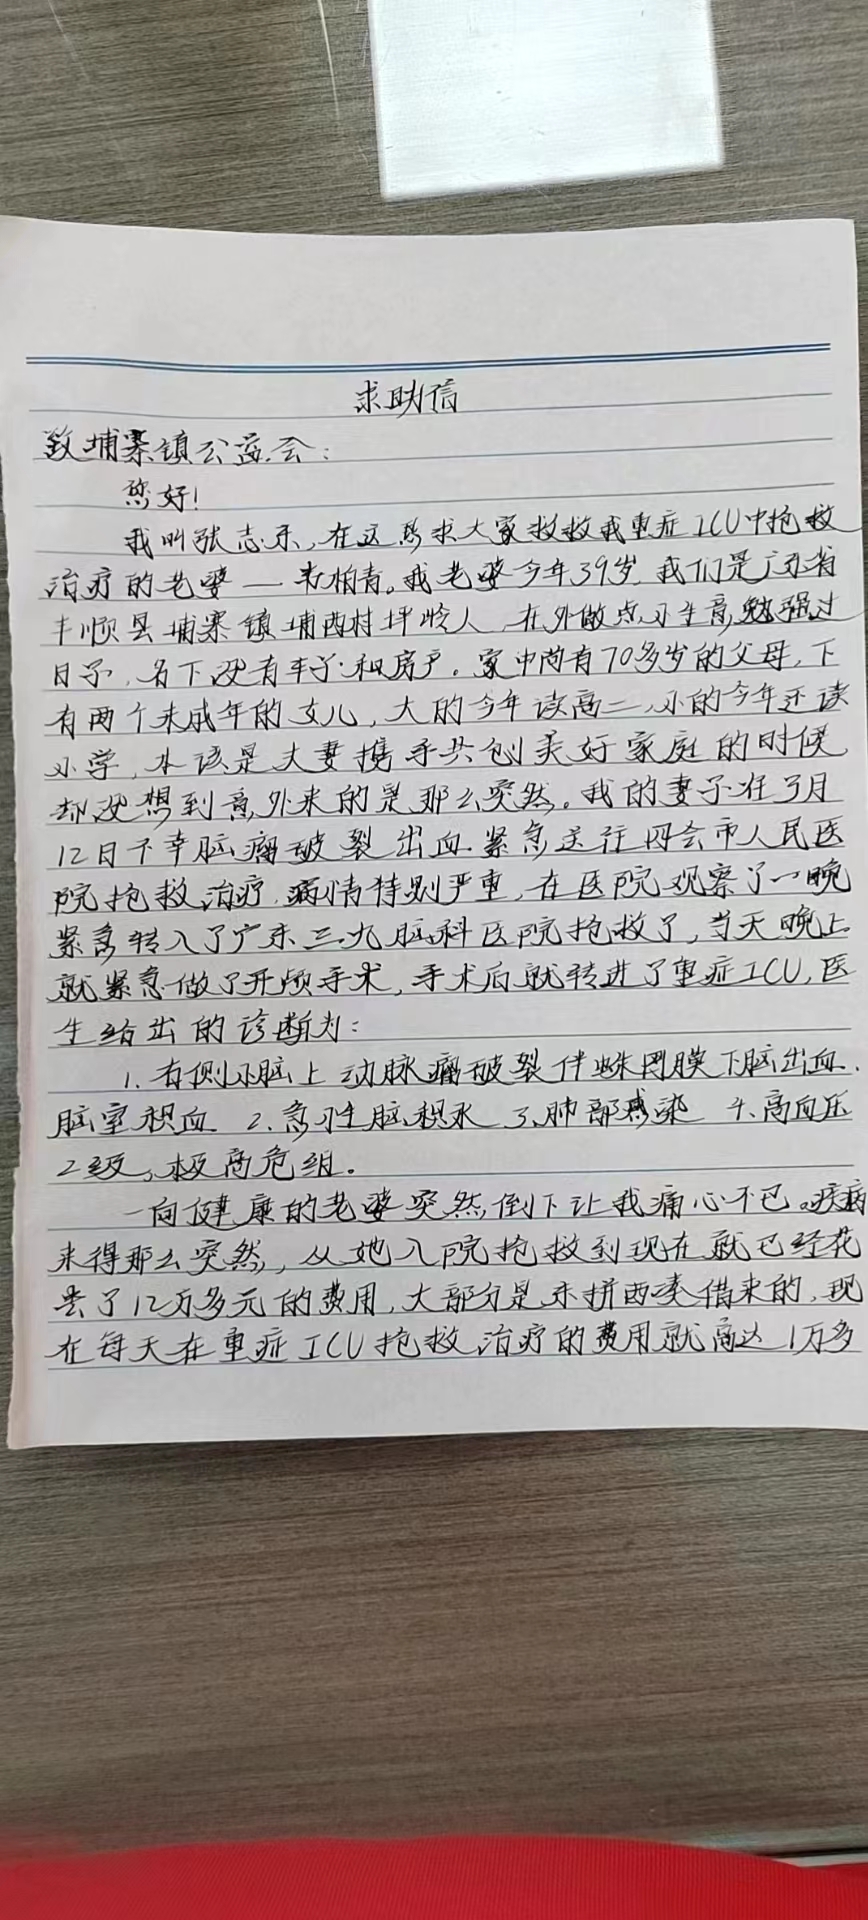 求助信
致埔寨镇公益会:
您好!
我叫张志乐,在这恳求大家救救我重症ICU中抢救
治疗的老婆——韦柏青。我老婆今年39岁,我们是广东省
丰顺县埔寨镇埔西村坪岭人,在外做点小生意,勉强过
日子,名下没有车子和房产。家中尚有70多岁的父母,下
有两个未成年的女儿,大的今年读高二,小的今年还读
小学,本该是夫妻携手共创美好家庭的时候
却没想到意外来的是那么突然。我的妻子在3月
12日不幸脑瘤破裂出血.紧急送往四会市人民医
院抢救治疗,病情特别严重,在医院观察了一晚
紧急转入了广东三九脑科医院抢救了,当天晚上
就紧急做了开颅手术,手术后就转进了重症ICU,医
生给出的诊断为:
1.右侧小脑上动脉瘤破裂伴蛛网膜下脑出血.
脑室积血 2.急性脑积水 3.肺部感染 4.高血压
2级,极高危组。
一向健康的老婆突然倒下让我痛心不已。疾病
来得那么突然,从她入院抢救到现在就已经花
去了12万多元的费用,大部分是东拼西凑借来的,现
在每天在重症ICU抢救治疗的费用就高达1万多